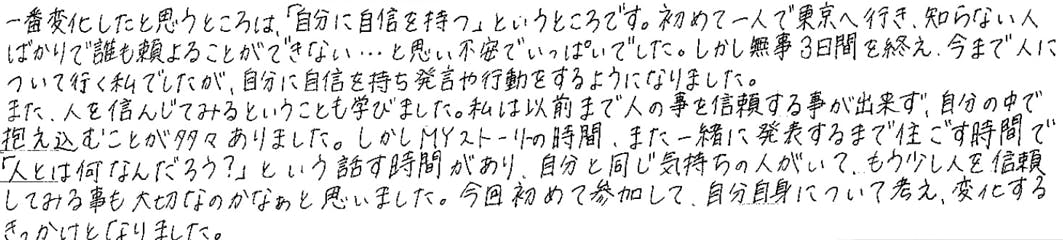 一番変化したと思うところは、「自分に自信を持つ」というところです。初めて一人で東京へ行き、知らない人
ばかりで誰も頼よることができない…と思い不安でいっぱいでした。しかし無事3日間を終え、今まで人に
ついて行く私でしたが、自分に自信を持ち発言や行動をするようになりました。
また、人を信んじてみるということも学びました。私は以前まで人の事を信頼する事が出来ず、自分の中で
抱え込むことが多々ありました。しかしMYストーリーの時間、また一緒に発表するまで住ごす時間で
「人とは何なんだろう?」という話す時間があり、自分と同じ気持ちの人がいて、もう少し人を信頼
してみる事も大切なのかなぁと思いました。今回初めて参加して、自分自身について考え、変化する
きっかけとなりました。